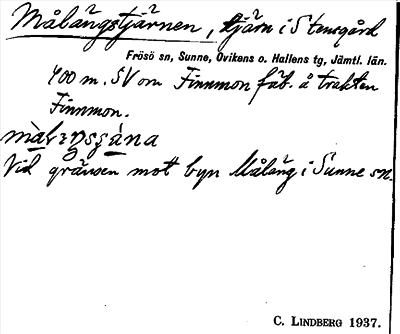 Målängstjärnen, tjärn i Stensgård
Frösö sn, Sunne, Ovikens o. Hallens tg, Jämtl. län.
400 m. SV om Finnmon fäb. å trakten
Finnmon.
Vid gränsen mot byn Måläng i Sunne sn.
C. LINDBERG 1937.